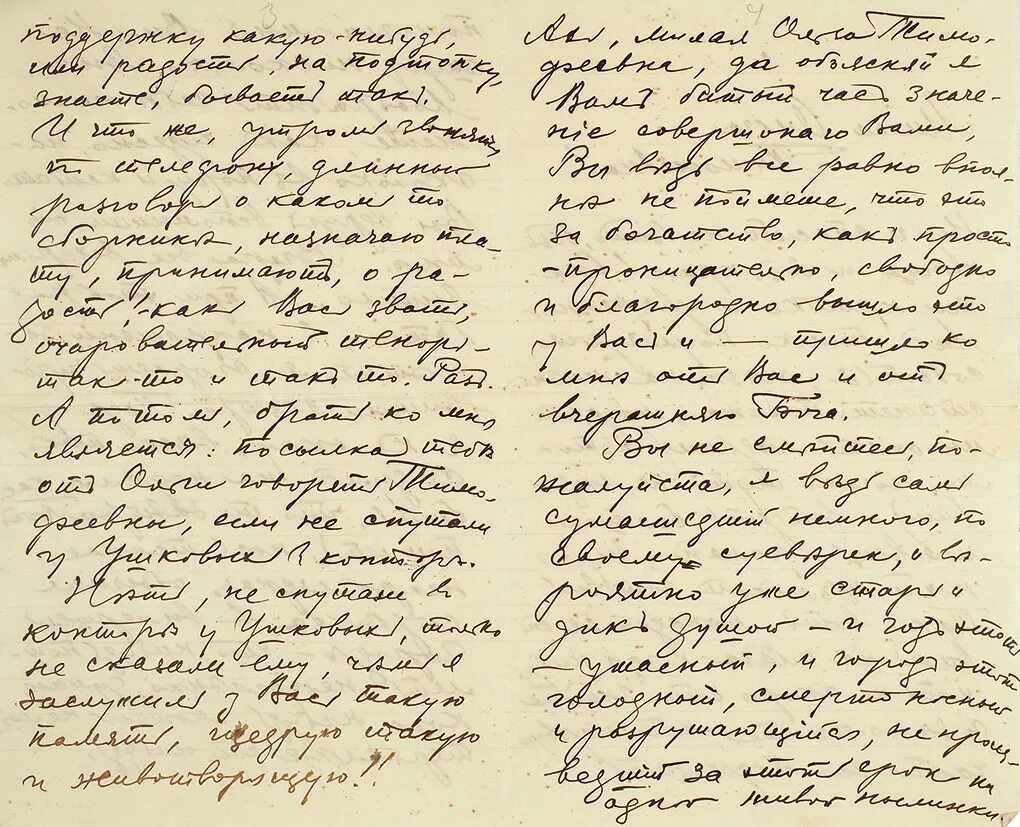 3
поддержку какую-нибудь,
или радость, на подтопку,
знаете, бываетъ такъ.
И что же, утромъ звонятъ
по телефону, длинный
разговоръ о какомъ то
сборникѣ, назначаю пла-
ту, принимаютъ, о ра-
дость! - какъ Васъ звать,
очаровательный теноръ -
такъ-то и такъ то. Разъ.
А потомъ, братъ ко мнѣ
является: посылка тебѣ
отъ Ольги говорятъ Тимо-
феевны, если не спутали
у Ушковыхъ в конторѣ.
Нѣтъ, не спутали въ
конторѣ у Ушковыхъ, только
не сказали ему, чѣмъ я
заслужилъ у Васъ такую
память, щедрую такую
и животворящую!!
4
Ахъ, милая Ольга Тимо-
феевна, да объясняй я
Вамъ битый часъ значе-
ніе совершонаго Вами,
Вы вѣдь все равно впол-
нѣ не поймете, что это
за богатство, какъ просто
-проницательно, свободно
и благородно вышло это
у Васъ и — пришло ко
мнѣ отъ Васъ и отъ
вчерашняго Бога.
Вы не смѣйтесь, по-
жалуйста, я вѣдь самъ
сумасшедшій немного, по
своему суевѣренъ, и вѣ-
роятно уже старъ и
дикъ душой - и годъ этотъ
- ужасный, и городъ этотъ
голодный, смертоносный
и разрушающійся, не произ-
ведшій за этотъ срокъ ни
одной живой пылинки.